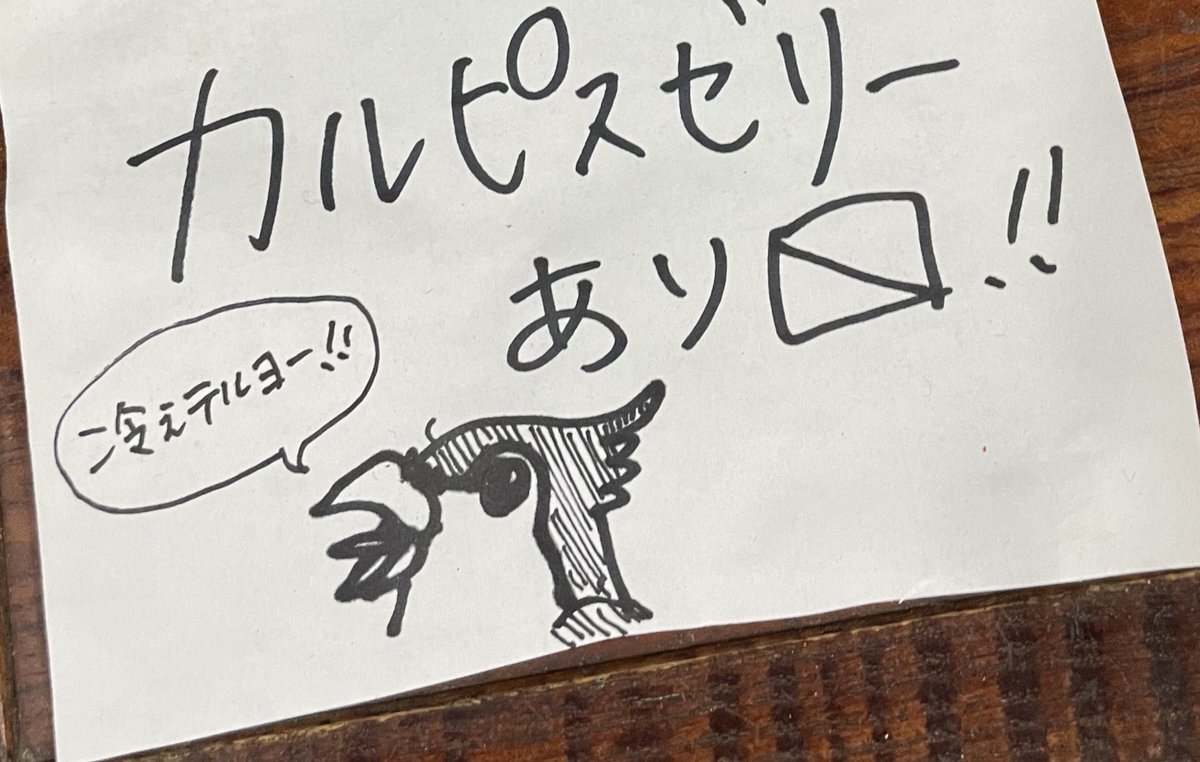 カルピスゼリー
あり〼!!
冷えテルヨー!!